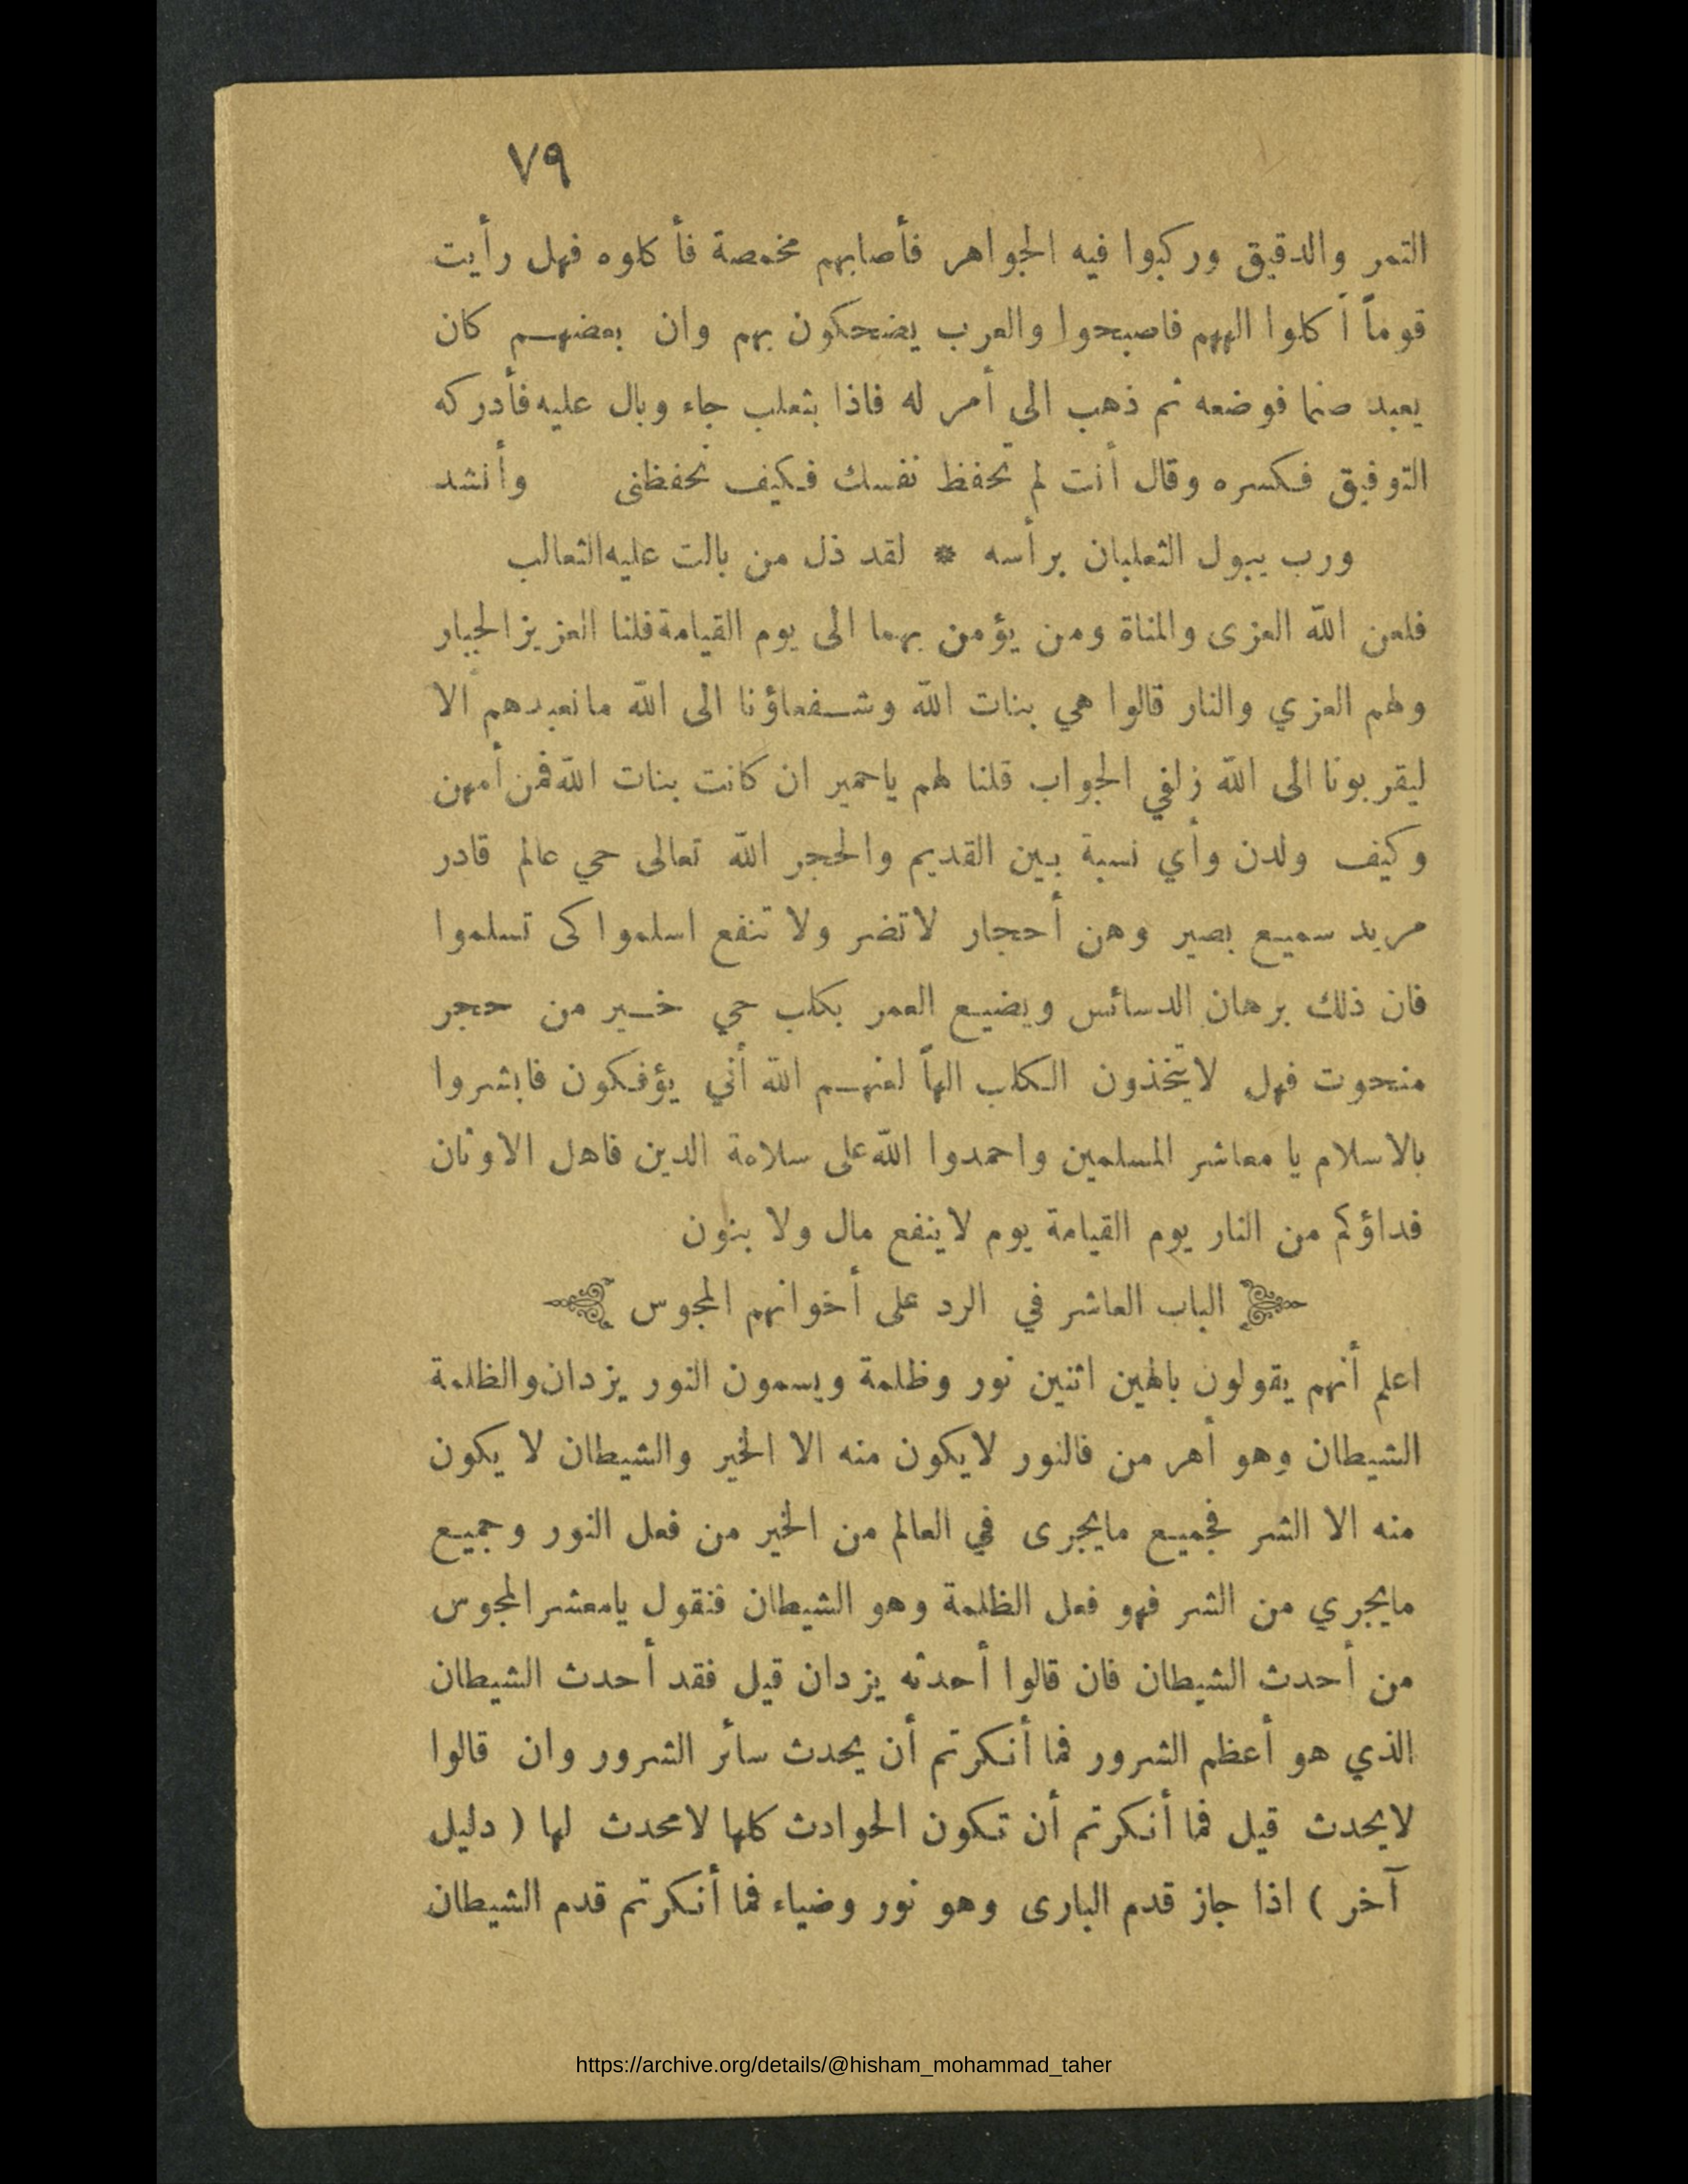 ٧٩
التمر والدقيق وركبوا فيه الجواهر فأصابهم مخمصة فأكلوه فهل رأيت
قوماً أكلوا الههم فاصبحوا والعرب يضحكون بهم وان بعضهم كان
يعبد صنما فوضعه ثم ذهب الى أمر له فاذا بثعلب جاء وبال عليه فأدركه
التوفيق فكسره وقال أنت لم تحفظ نفسك فكيف تحفظنى وأنشد
ورب يبول الثعلبان برأسه * لقد ذل من بالت عليه الثعالب
فلعن الله العزى والمناة ومن يؤمن بهما الى يوم القيامة فلنا العزيز الجبار
ولهم العزي والنار قالوا هي بنات الله وشفعاؤنا الى الله مانعبدهم الا
ليقربونا الى الله زلفي الجواب قلنا لهم ياحمير ان كانت بنات الله فمن أمهن
وكيف ولدن وأي نسبة بين القديم والحجر الله تعالى حي عالم قادر
مريد سميع بصير وهن أحجار لاتضر ولا تنفع اسلموا كى تسلموا
فان ذلك برهان الدسائس ويضيع العمر بكلب حي خير من حجر
منحوت فهل لايتخذون الكلب الهاً لعنهم الله أني يؤفكون فابشروا
بالاسلام يا معاشر المسلمين واحمدوا الله على سلامة الدين فاهل الاوثان
فداؤكم من النار يوم القيامة يوم لاينفع مال ولا بنون
الباب العاشر في الرد على أخوانهم المجوس
اعلم أنهم يقولون بالهين اثنين نور وظلمة ويسمون النور يزدان والظلمة
الشيطان وهو أهر من فالنور لايكون منه الا الخير والشيطان لا يكون
منه الا الشر فجميع مايجرى في العالم من الخير من فعل النور وجميع
مايجري من الشر فهو فعل الظلمة وهو الشيطان فنقول يامعشر المجوس
من أحدث الشيطان فان قالوا أحدثه يزدان قيل فقد أحدث الشيطان
الذي هو أعظم الشرور فما أنكرتم أن يحدث سائر الشرور وان قالوا
لايحدث قيل فما أنكرتم أن تكون الحوادث كلها لامحدث لها ( دليل
آخر ) اذا جاز قدم البارى وهو نور وضياء فما أنكرتم قدم الشيطان
https://archive.org/details/@hisham_mohammad_taher